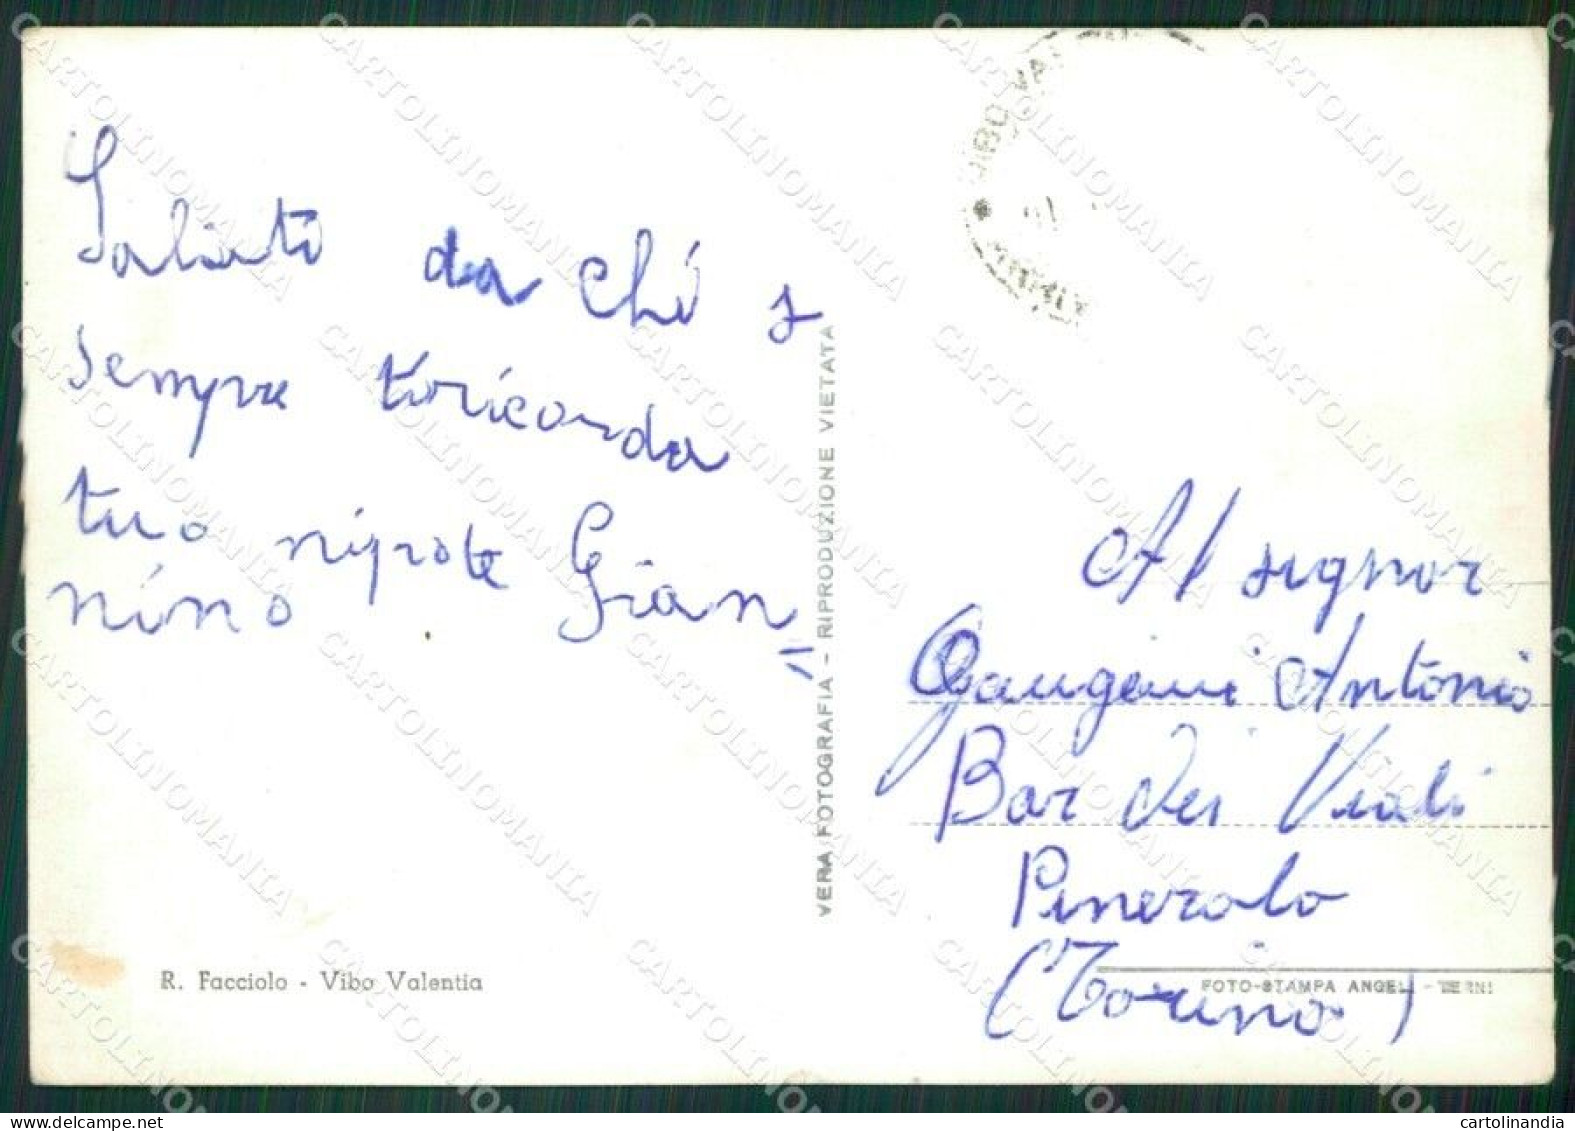 Saluti da chi s
sempre ti ricorda
tuo nipote Gian=
nino
R. Facciolo - Vibo Valentia
VERA FOTOGRAFIA - RIPRODUZIONE VIETATA
VIBO VAL
Al signor
Gangemi Antonio
Bar dei Viali
Pinerolo
(Torino)
FOTO-STAMPA ANGELI - TERNI
CARTOLINOMANIA
cartolinandia
delcampe.net